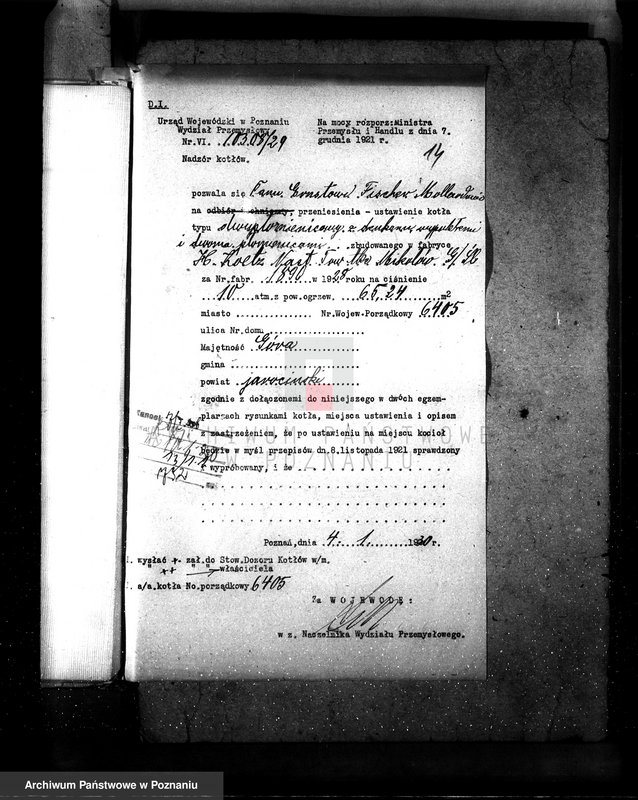 D.I.
Urząd Wojewódzki w Poznaniu
Wydział Przemysłowy
Nr.VI. 103.08/29
Nadzór kotłów.
Na mocy rozporz:Ministra
Przemysłu i Handlu z dnia 7.
grudnia 1921 r.
14
pozwala się Panu Ernstowi Fischer Mollard
na odbiór przeniesienia - ustawienie kotła
typu dwupłomienicowy z
i dwoma płomienicami zbudowanego w fabryce
H. Koetz Nast. Tow. Mikołów G/Śl
za Nr.fabr. 1890 w 1928 roku na ciśnienie
10 atm.z pow.ogrzew. 65,24 m2
miasto Nr.Wojew.Porządkowy 6405
ulica Nr.domu
Majętność Góra
gmina
powiat jarociński
zgodnie z dołączonemi do niniejszego w dwóch egzem-
plarzach rysunkami kotła, miejsca ustawienia i opisem
z zastrzeżeniem, że po ustawieniu na miejscu kocioł
będzie w myśl przepisów dn.8.listopada 1921 sprawdzony
i wypróbowany, i że
Poznań,dnia 4. 1. 1930 r.
wysłać + zał.do Stow.Dozoru Kotłów w/m.
++ " " właściciela
a/a.kotła No.porządkowy 6405
Za WOJEWODĘ:
w z. Naczelnika Wydziału Przemysłowego.
ARCHIWUM PAŃSTWOWE
W POZNANIU
Archiwum Państwowe w Poznaniu